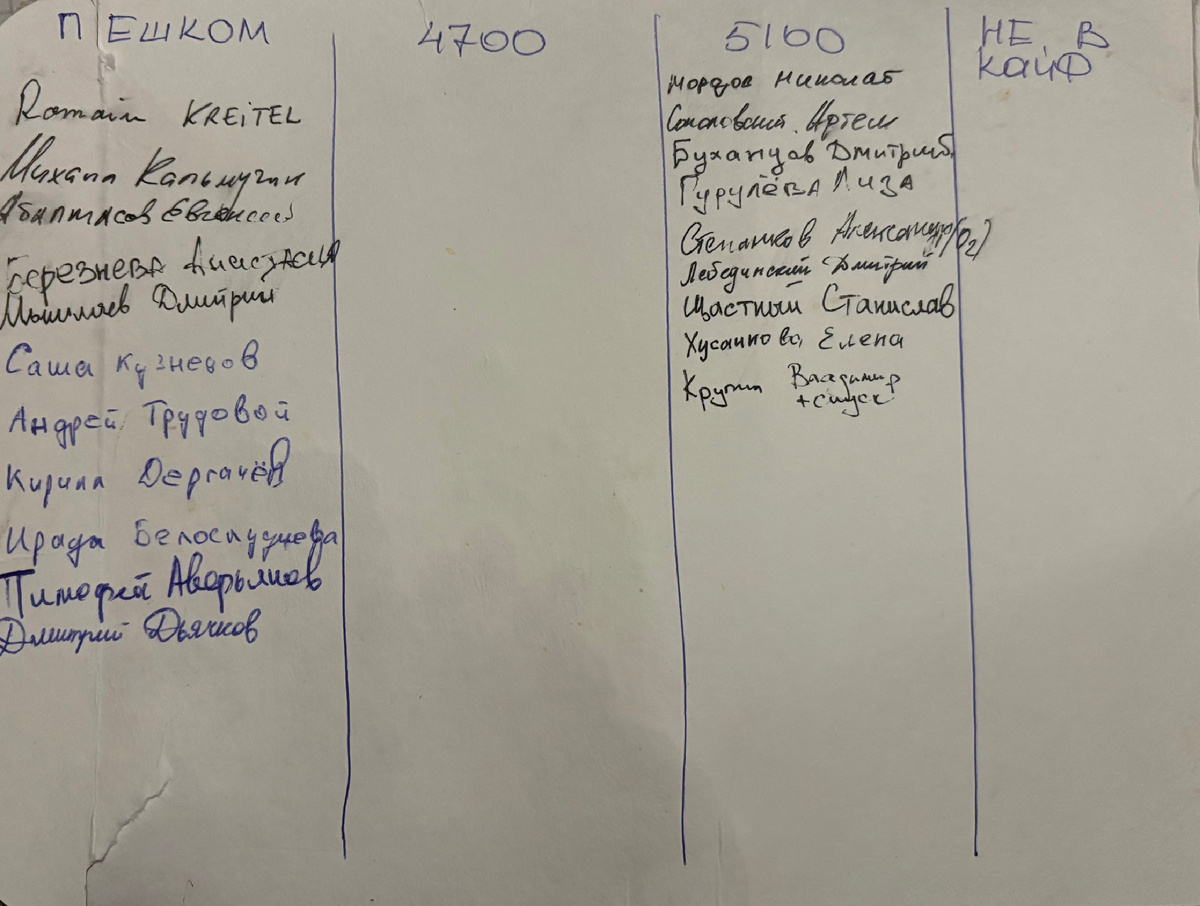 ПЕШКОМ
Romain KREiTEL
Михаил Кальмучин
Евгений
Березнева Анастасия
Дмитрий
Саша Кузнецов
Андрей Трудовой
Кирилл Дергачёв
Ирада Белослудцева
Тимофей Аверьянов
Дмитрий Дьячков
4700
5100
Николай
Соколовский Артем
Буханцов Дмитрий
Гурулёва Лиза
Степанков Александр (O2)
Лебединский Дмитрий
Щастный Станислав
Хусаинова Елена
Владимир
+спуск
НЕ В
КАЙФ